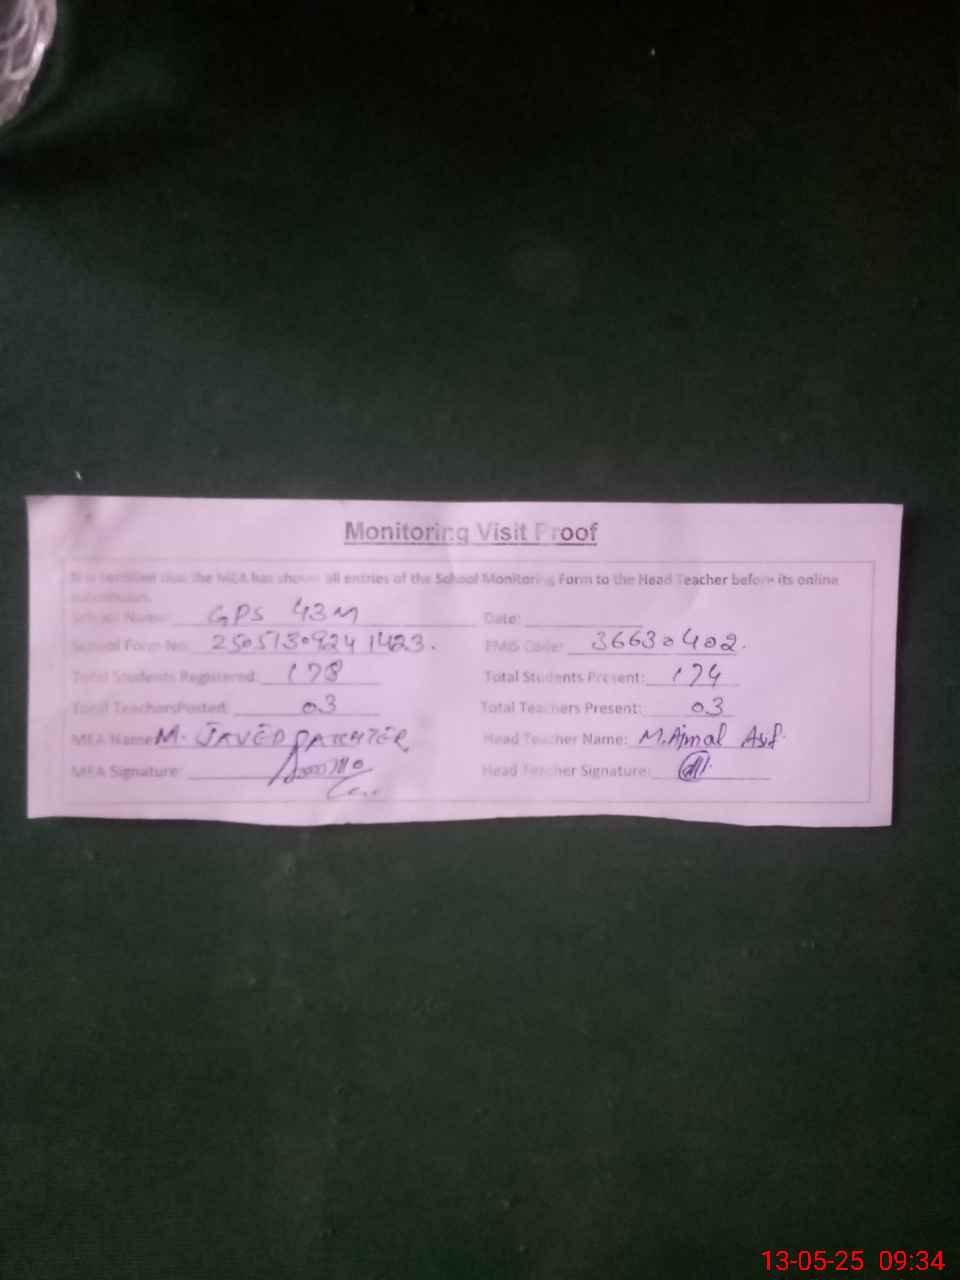 Monitoring Visit Proof
It is certified that the MEA has shown all entries of the School Monitoring Form to the Head Teacher before its online
submission.
School Name: GPS 43M Date:
School Form No: 2505130924 1423. EMIS Code: 36630402.
Total Students Registered: 178 Total Students Present: 174
Total TeachersPosted: 03 Total Teachers Present: 03
MEA Name: M. JAVED Head Teacher Name: M. Ajmal Asif
MEA Signature: Head Teacher Signature:
13-05-25 09:34